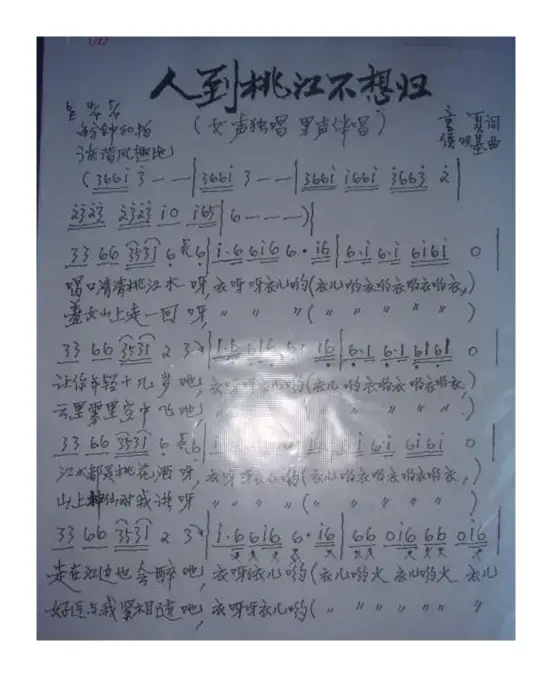 人到桃江不想归
(女声独唱 男声伴唱)
每分钟 拍
诙谐风趣地
词
曲
(366i 3 - - | 366i 3 - - | 366i i66i i663 2 |
2323 2323 i0 i65 | 6 - - - ) |
33 66 3531 6 6 | i·6 6i6 6· i6 | 6·i 6·i 6i6i 0 |
喝口清清桃江水呀,衣呀呀衣儿哟(衣儿哟衣哟衣哟衣哟衣,)
羞女山上走一回呀,〃 〃 〃 (〃 〃 〃 〃 〃 )
33 66 3531 2 3 | i·6 6i6 6· i6 | 6·i 6·i 6i6i 0 |
让你年轻十几岁地,衣呀呀衣儿哟(衣儿哟衣哟衣哟衣哟衣)
云里雾里空中飞地,〃 〃 〃 (〃 〃 〃 〃 〃 )
33 66 3531 6 6 | i·6 6i6 6· i6 | 6·i 6·i 6i6i 0 |
江水都是桃花酒呀,衣呀呀衣儿哟(衣儿哟衣哟衣哟衣哟衣,)
山上神仙对我讲呀 〃 〃 〃 (〃 〃 〃 〃 〃 )
33 66 3531 2 3 | i·6 6i6 6· i6 | 66 0i6 66 0i6
走在江边也会醉地,衣呀衣儿哟(衣儿哟火 衣儿哟火 衣儿
好逗与我紧相随地,衣呀呀衣儿哟(〃 〃 〃 〃 〃 〃